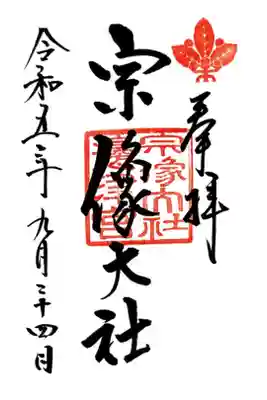 奉拝
宗像大社
宗像大社
令和五年九月二十四日